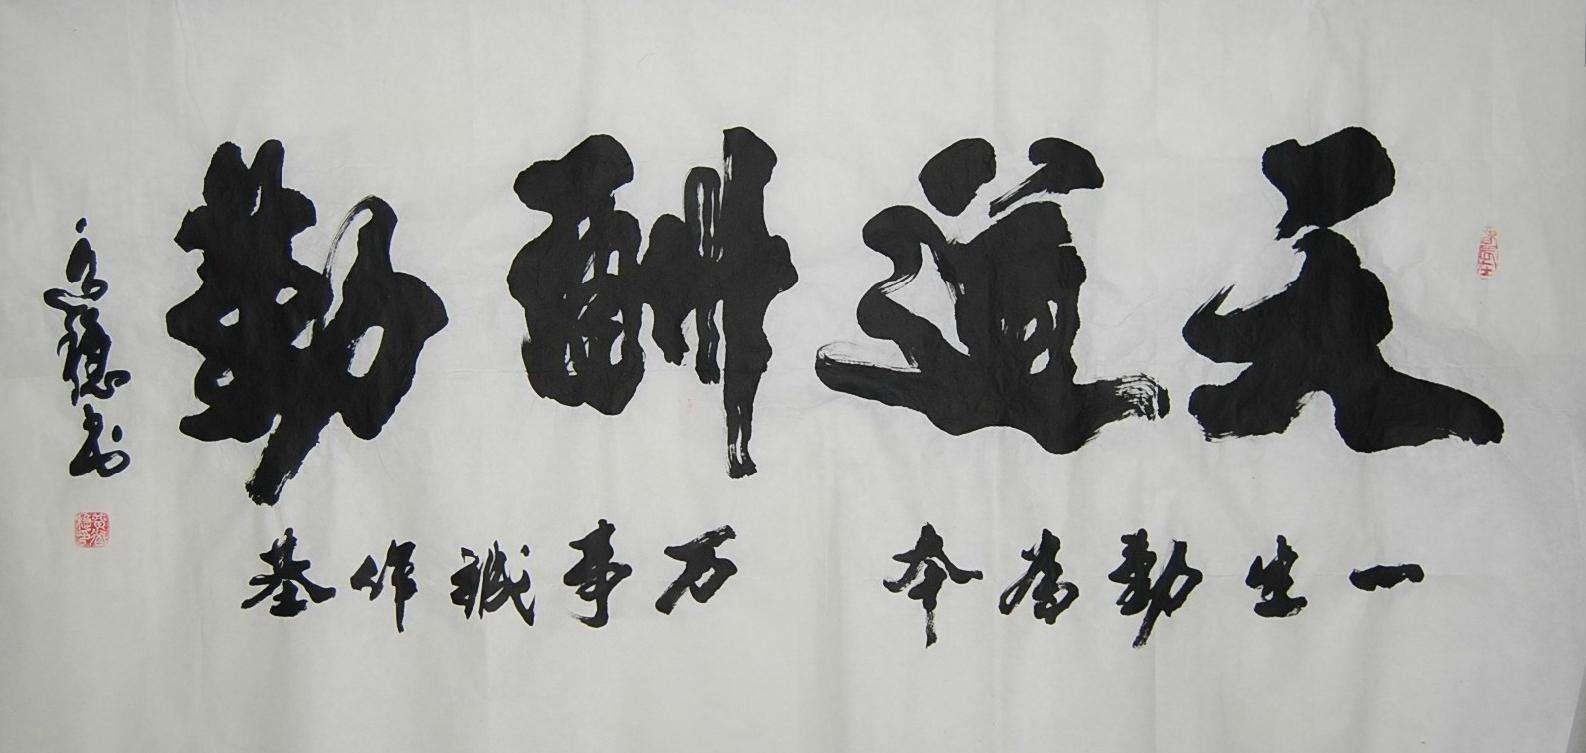 天道酬勤
一生勤為本 万事誠作基